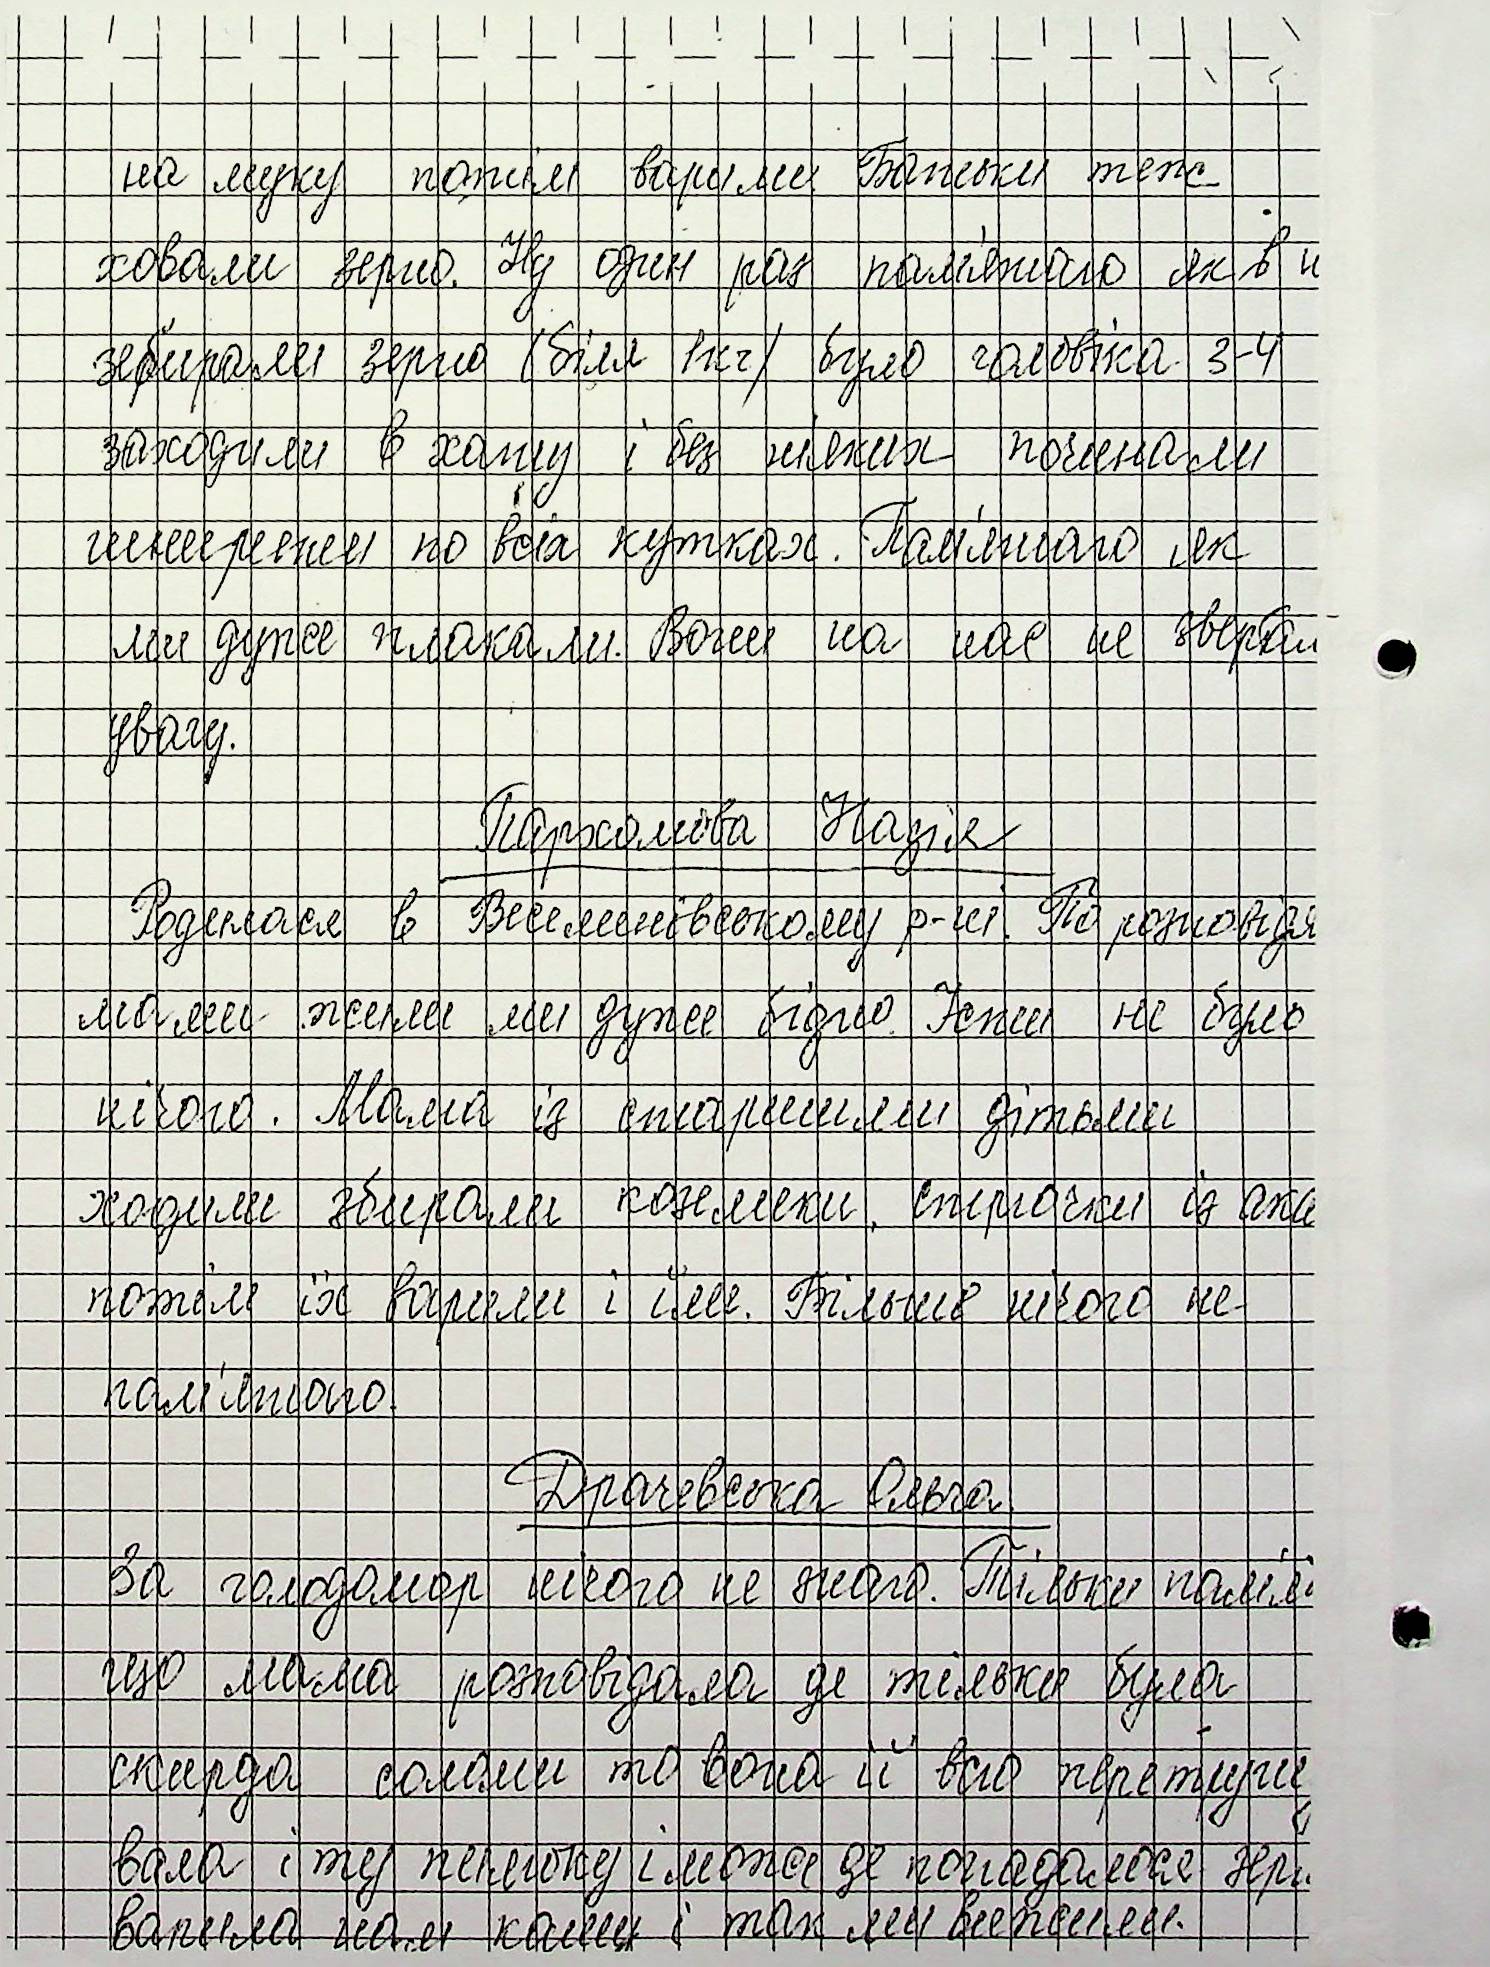 на муку потім варили Батьки теж
ховали зерно. Ну один раз пам'ятаю як в н
зебирали зерно (біля 1кг) було чоловіка 3-4
заходили в хату і без ніяких починали
ширяти по всіх кутках. Пам'ятаю як
ми дуже плакали. Вони на нас не звертал
увагу.
Пархомова Надія
Родилася в Веселинівському р-ні. По розповідя
мами жили ми дуже бідно. Їсти не було
нічого. Мама із старшими дітьми
ходили збирали козелики, стручки із ака
потім їх варили і їли. Більше нічого не
пам'ятаю.
Драчевська Ольга
За голодомор нічого не знаю. Тільки
що мама розповідала де тільки була
скирда соломи то вона її всю
вала і ту і може де попадалося зерн
варила нам каши і так ми вижили.